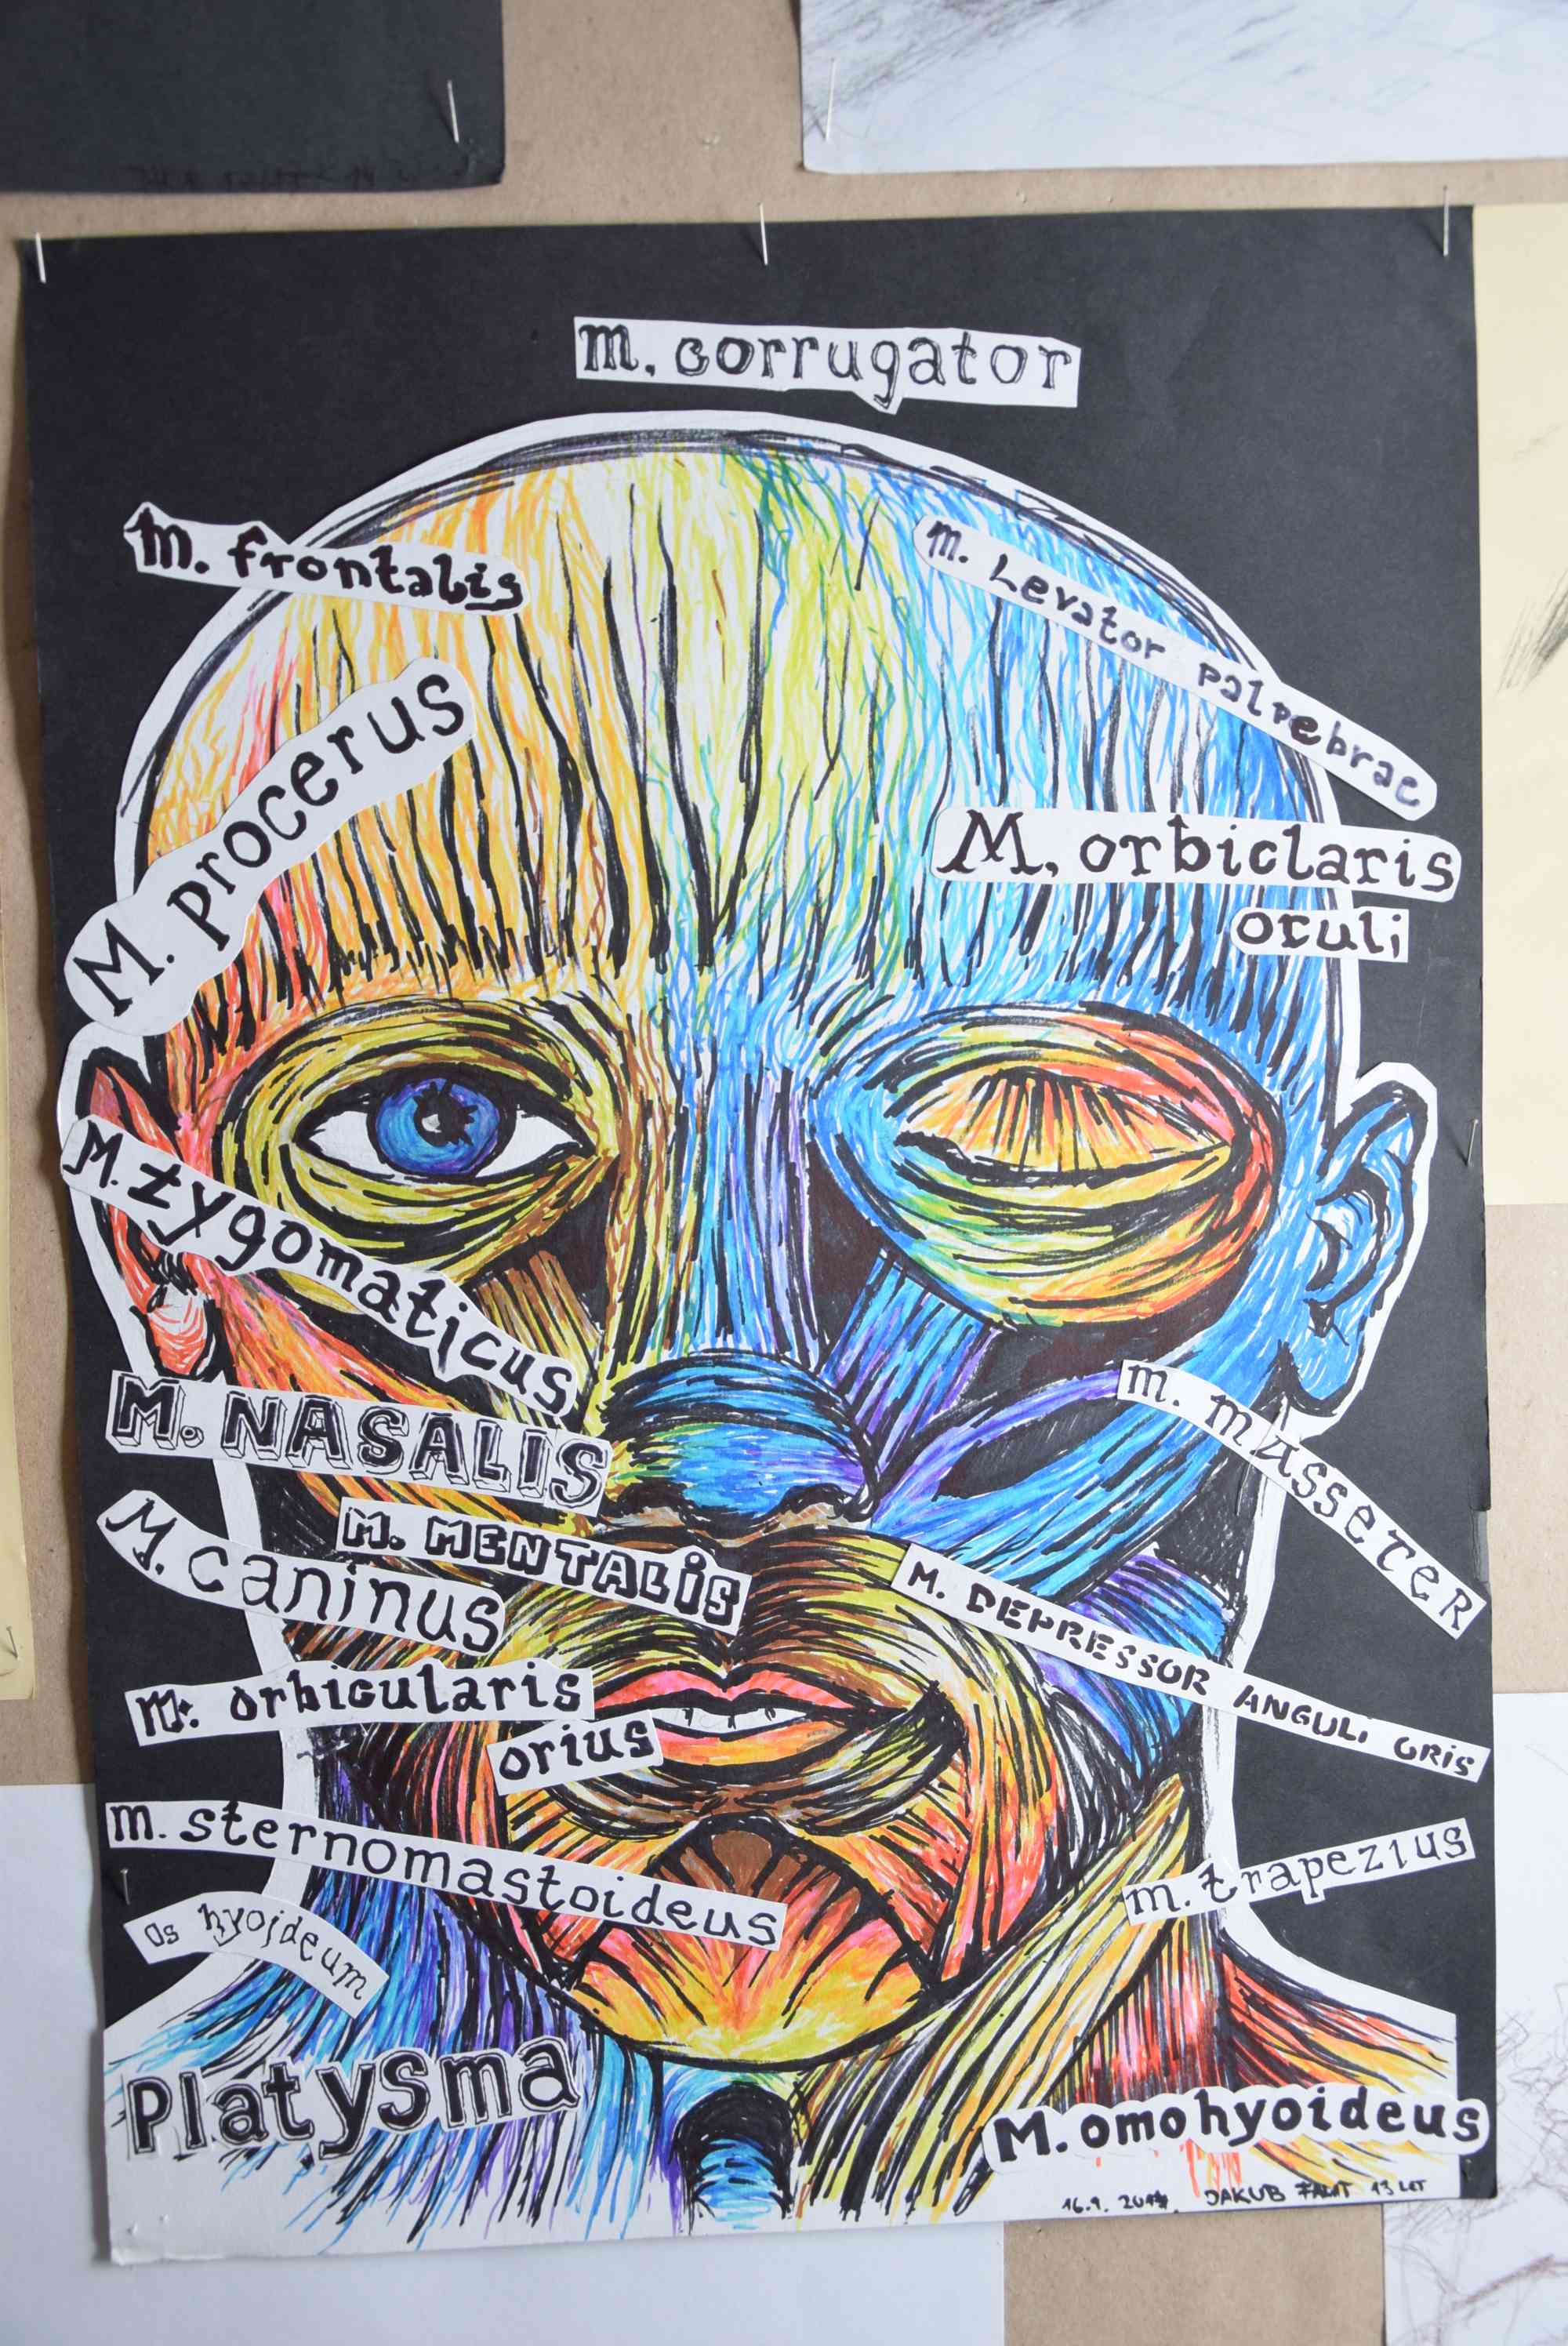 m. corrugator
m. frontalis
m. Levator palpebrae
M. procerus
M. orbiclaris
oculi
M. zygomaticus
m. masseter
M. NASALIS
M. MENTALIS
M. caninus
M. DEPRESSOR ANGULI ORIS
m. orbicularis
orius
m. sternomastoideus
m. trapezius
Os hyoideum
Platysma
M. omohyoideus
JAKUB 13 LET